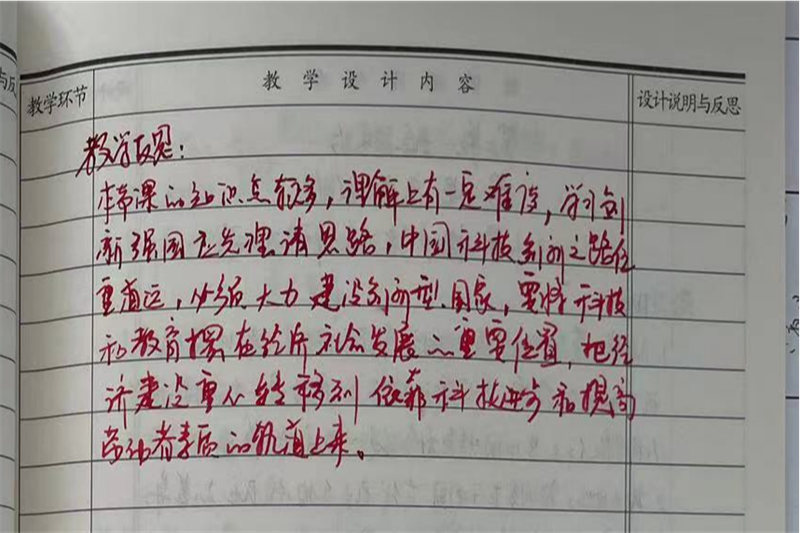 与反
教学环节 教学设计内容 设计说明与反思
教学反思：
本节课的知识点较多，理解上有一定难度，学习创
新强国应先理清思路，中国科技创新之路任
重道远，必须大力建设创新型国家，要将科技
和教育摆在经济社会发展的重要位置，把经
济建设重心转移到依靠科技进步和提高
劳动者素质的轨道上来。